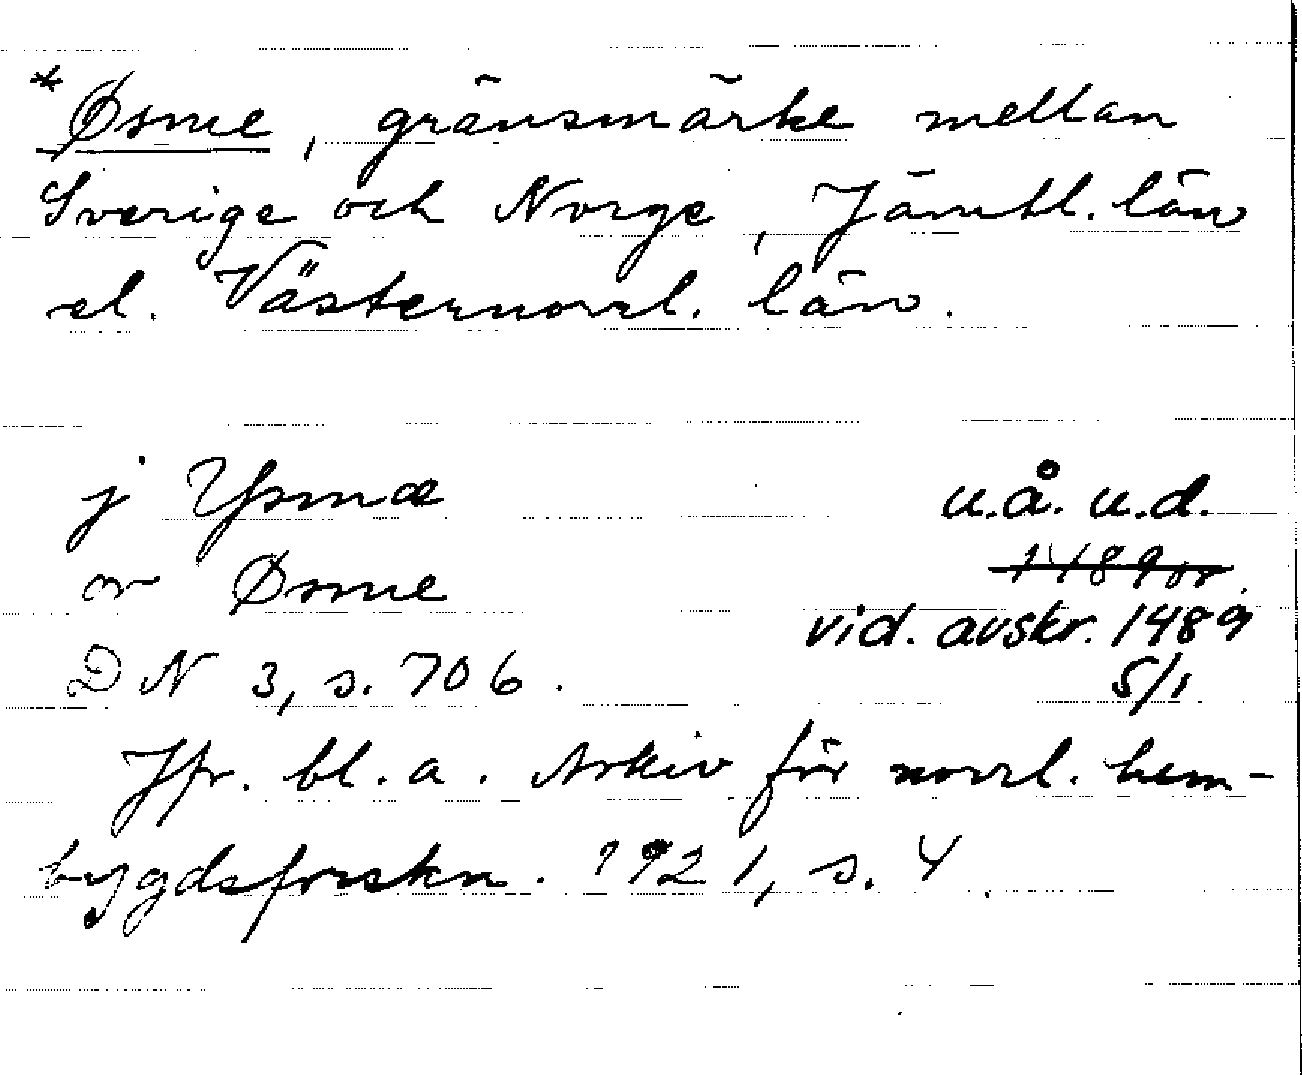 *Øsme, gränsmärke mellan
Sverige och Norge, Jämtl. län
el. Västernorrl. län.
j Ysmæ
u.å. u.d.
or Øsme
vid. avskr. 1489
DN 3, s. 706.
5/1
Jfr. bl.a. Arkiv för norrl. hem-
bygdsforskn. 1921, s. 4.